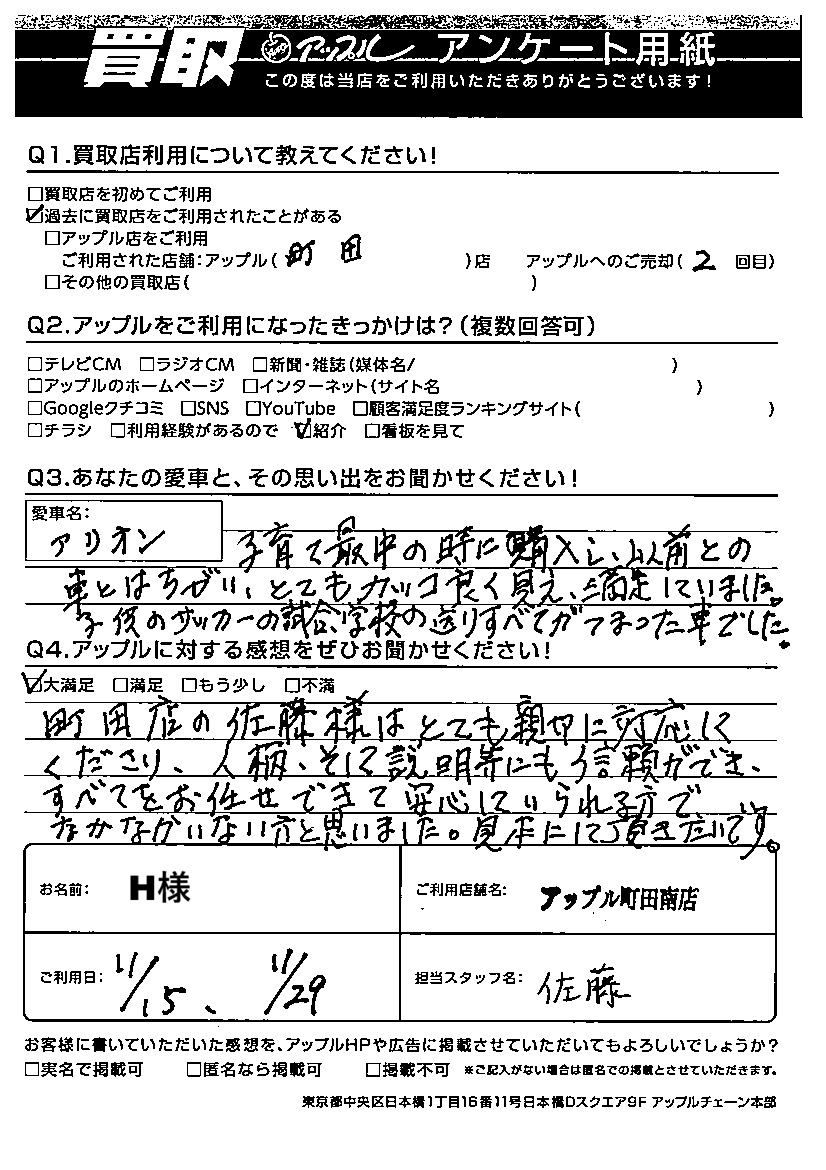 買取 アップル アンケート用紙
この度は当店をご利用いただきありがとうございます!
Q1.買取店利用について教えてください!
□買取店を初めてご利用
☑過去に買取店をご利用されたことがある
□アップル店をご利用
ご利用された店舗:アップル( 町田 )店 アップルへのご売却( 2 回目)
□その他の買取店( )
Q2.アップルをご利用になったきっかけは?(複数回答可)
□テレビCM □ラジオCM □新聞・雑誌(媒体名/ )
□アップルのホームページ □インターネット(サイト名 )
□Googleクチコミ □SNS □YouTube □顧客満足度ランキングサイト( )
□チラシ □利用経験があるので ☑紹介 □看板を見て
Q3.あなたの愛車と、その思い出をお聞かせください!
愛車名:
アリオン 子育て最中の時に購入し、以前との
車とはちがい、とてもカッコ良く見え、満足していました。
子供のサッカーの試合、学校の送りすべてがつまった車でした。
Q4.アップルに対する感想をぜひお聞かせください!
☑大満足 □満足 □もう少し □不満
町田店の佐藤様はとても親切に対応して
くださり、人柄、そして説明等にも信頼ができ、
すべてをお任せできて安心していられる方で
なかなかいない方と思いました。見本にして頂きたいです。
お名前: H様 ご利用店舗名: アップル町田南店
ご利用日: 11/15、 11/29 担当スタッフ名: 佐藤
お客様に書いていただいた感想を、アップルHPや広告に掲載させていただいてもよろしいでしょうか?
□実名で掲載可 □匿名なら掲載可 □掲載不可 ※ご記入がない場合は匿名での掲載とさせていただきます。
東京都中央区日本橋1丁目16番11号日本橋Dスクエア9F アップルチェーン本部